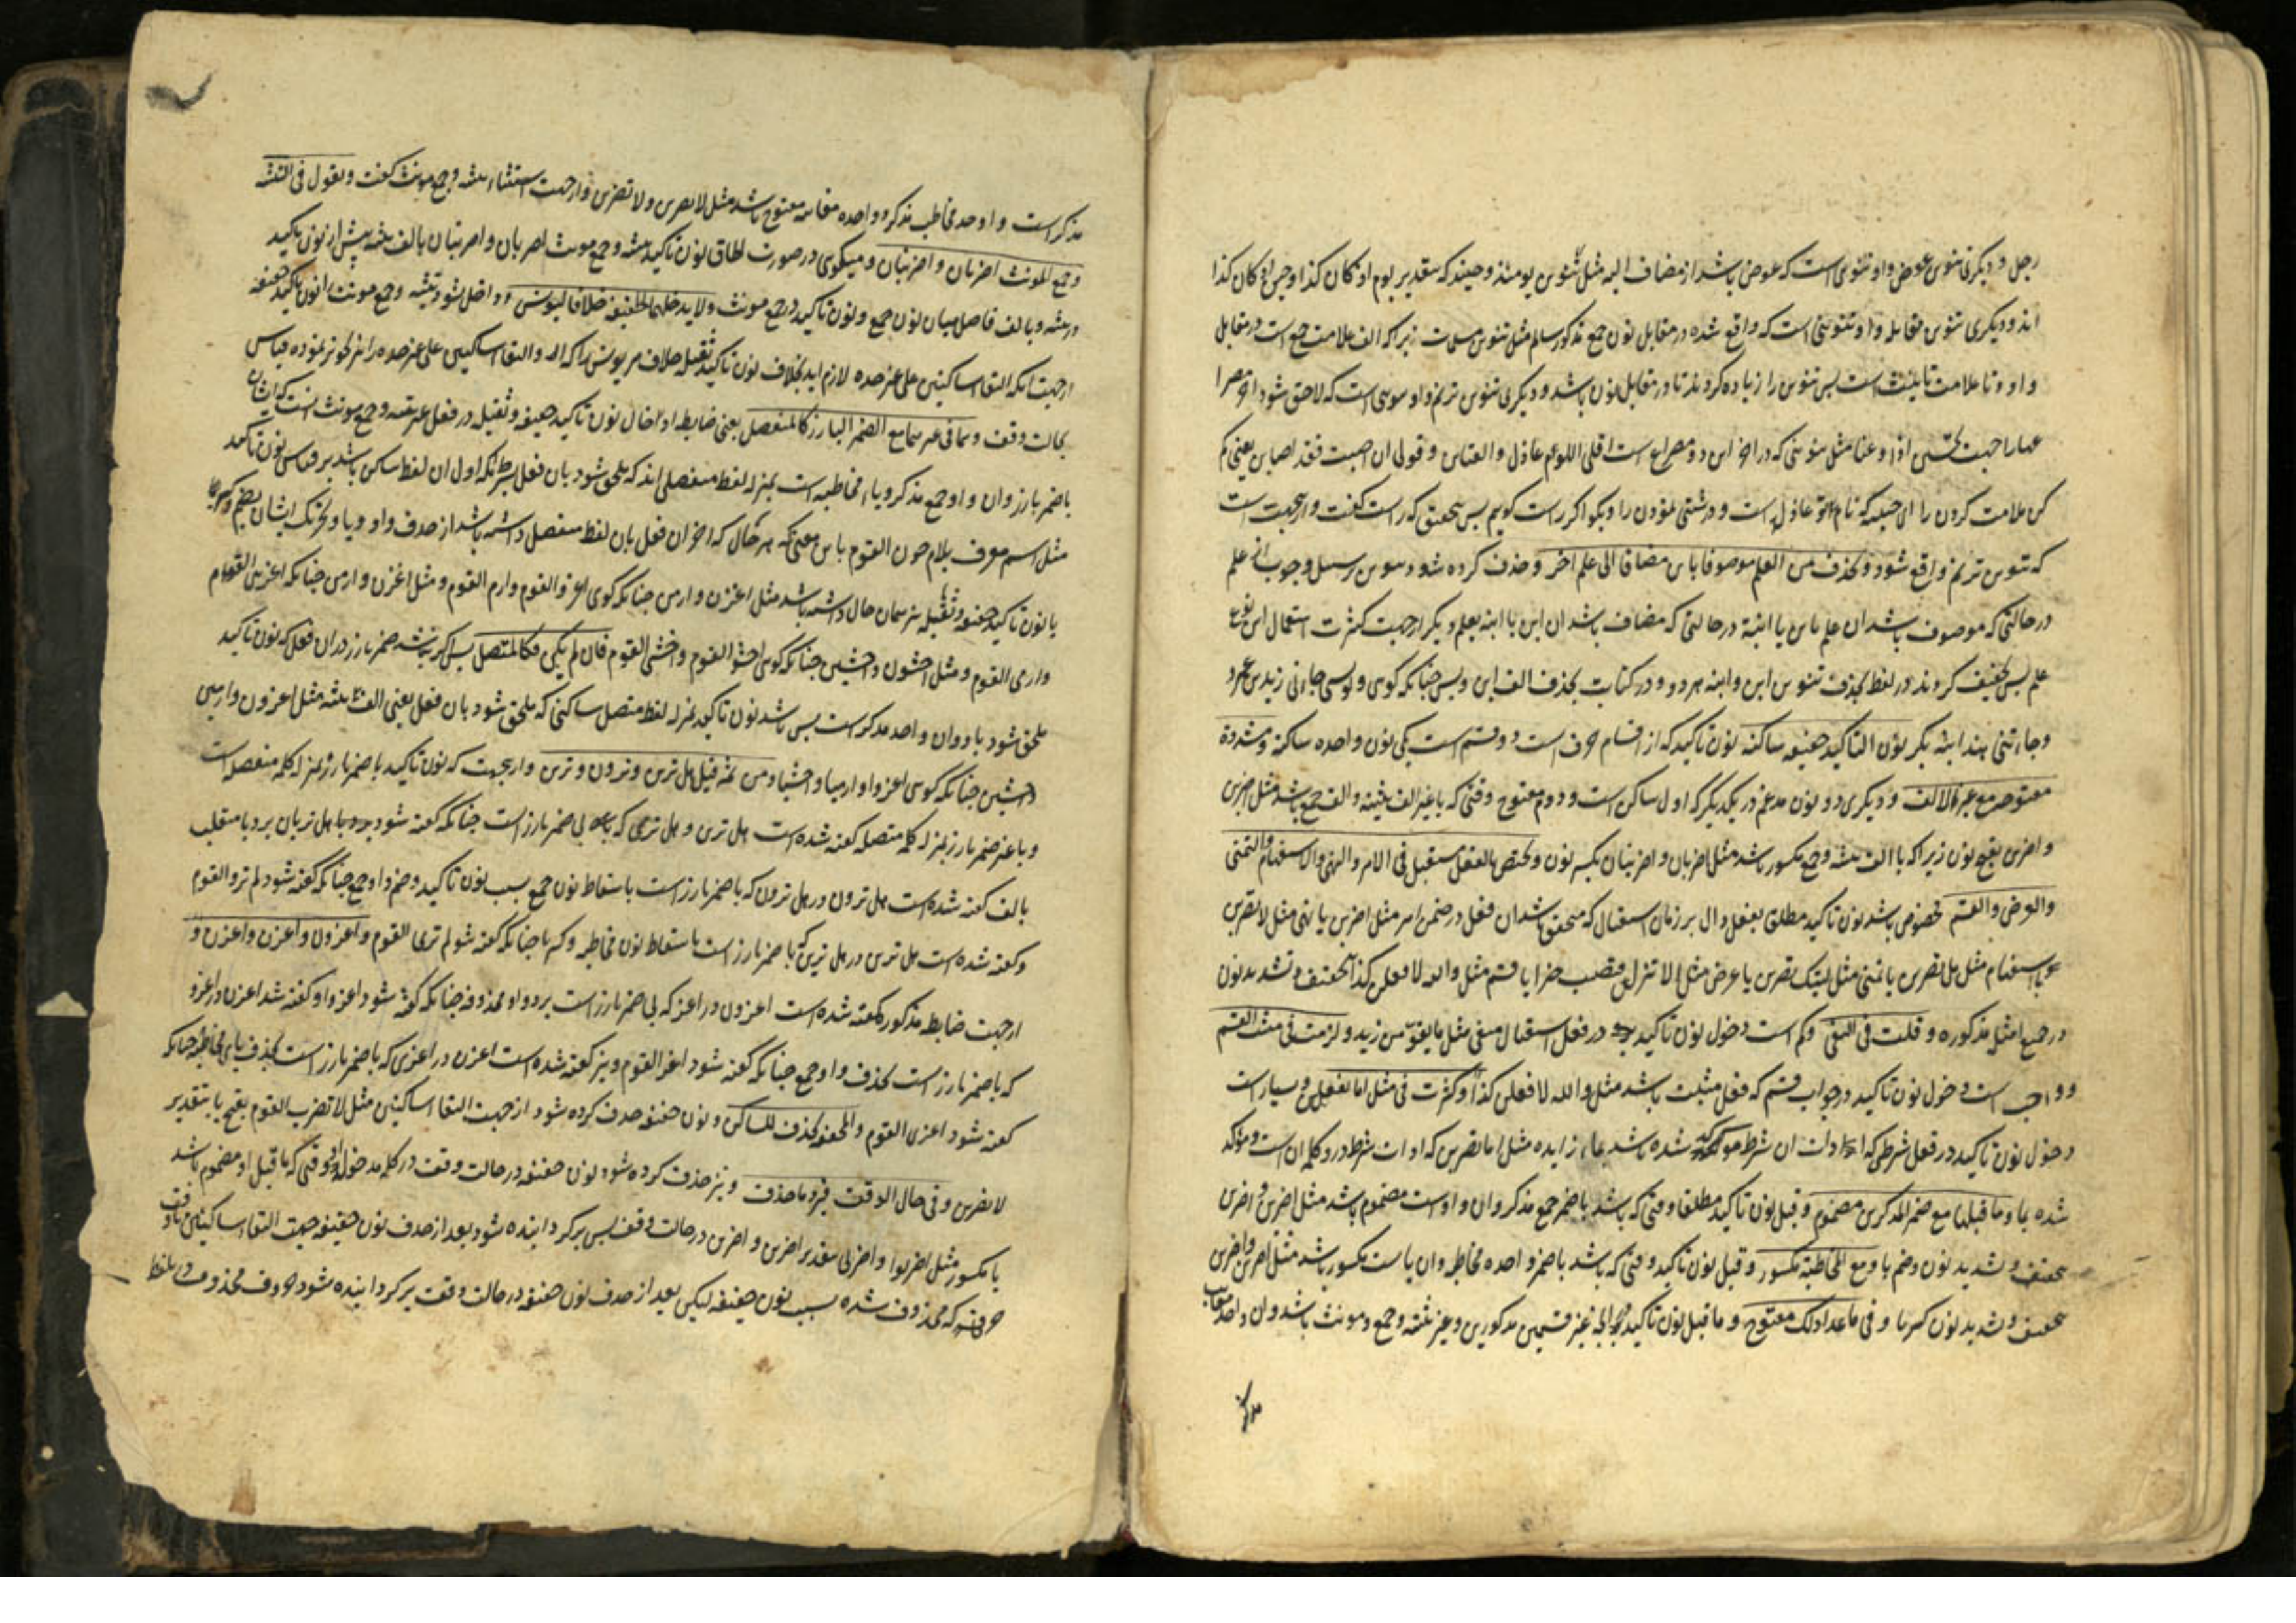 رجل و دیگری تنوین عوض و او تنوینی است که عوض باشد از مضاف الیه مثل تنوین یومئذ و حینئذ که بتقدیر یوم اذ کان کذا و حین اذ کان کذا
اند و دیگری تنوین مقابله و او تنوینی است که واقع شده در مقابل نون جمع مذکر سالم مثل تنوین مسلمات زیرا که الف علامت جمع است در مقابل
واو و تا علامت تانیث است پس تنوین را زیاده کردند تا در مقابل نون باشد و دیگری تنوین ترنم و او تنوینی است که لاحق شود اخر مصرا
مثل تنوینی که در اخر این دو مصراع است اقلی اللوم عاذل و العتابن و قولی ان اصبت فقد اصابن یعنی کم
کن ملامت کردن را ای حبیبه که نام تو عاذل است و درشتی نمودن را و بگو اگر راست گویم پس بتحقیق که راست گفت و ازینجهت است
که تنوین ترنم واقع شود و یحذف من العلم موصوفا بابن مضافا الی علم اخر و حذف کرده شود تنوین بر سبیل وجوب از علم
در حالتی که موصوف باشد ان علم بابن یا ابنة در حالتی که مضاف باشد ان ابن یا ابنه بعلم دیگر ازجهت کثرت استعمال این نوع
علم پس تخفیف کردند در لفظ بحذف تنوین ابن و ابنه هر دو و در کتابت بحذف الف ابن و بس چنانکه گوی و نویسی جاءنی زید بن عمرو
و جاءتنی هند ابنة بکر نون التاکید خفیفه ساکنه نون تاکید که از اقسام حرف است دو قسم است یکی نون واحده ساکنة و مشددة
مفتوحه مع غیر الالف و دیگری دو نون مدغم در یکدیگر که اول ساکن است و دوم مفتوح وقتی که با غیر الف تثنیه و الف جمع باشد مثل اضربن
و اضربن بفتح نون زیرا که با الف تثنیه و جمع مکسور باشد مثل اضربان و اضربنان بکسر نون و تختص بالفعل المستقبل فی الامر و النهی و الاستفهام و التمنی
و العرض و القسم مخصوص باشد نون تاکید مطلق بفعل دال بر زمان استقبال که متحقق باشد ان فعل در ضمن امر مثل اضربن یا نهی مثل لا تضربن
یا استفهام مثل هل تضربن یا تمنی مثل لیتک تضربن یا عرض مثل الا تنزلن فتصیب خیرا یا قسم مثل والله لافعلن کذا بتخفیف و تشدید نون
در جمیع امثله مذکوره و قلت فی النفی و کم است دخول نون تاکید در فعل استقبال منفی مثل ما یقومن زید و لزمت فی مثبت القسم
و واجب است دخول نون تاکید در جواب قسم که فعل مثبت باشد مثل والله لافعلن کذا و کثرت فی مثل اما تفعلن و بسیار است
دخول نون تاکید در فعل شرطی که ادات ان شرط موکد شده باشد بماء زایده مثل اما تضربن که ادات شرط در و کلمه ان است و موکد
شده بما و ما قبلها مع ضمیر المذکرین مضموم و قبل نون تاکید مطلقا وقتی که باشد با ضمیر جمع مذکر و ان واو است مضموم باشد مثل اضربن و اضربن
بتخفیف و تشدید نون و ضم با و مع المخاطبة مکسور و قبل نون تاکید وقتی که باشد با ضمیر واحده مخاطبه و ان یا است مکسور باشد مثل اضربن و اضربن
بتخفیف و تشدید نون کسر با و فی ما عدا ذلک مفتوح و ما قبل نون تاکید غیر قسمین مذکورین و غیر تثنیه و جمع مونث باشد و ان واحد
مذکر است و او حد مخاطب مذکر و واحده مغائبه مفتوح باشد مثل لا یضربن و لا تضربن و ازجهت استثناء تثنیه و جمع مونث گفت و تقول فی التثنیه
و جمع المونث اضربان و اضربنان و میگوی در صورت لحاق نون تاکید تثنیه و جمع مونث اضربان و اضربنان با الف تثنیه پیش از نون تاکید
در تثنیه و با الف فاصل میان نون جمع و نون تاکید در جمع مونث و لا یدخلهما الخفیفه خلافا لیونس و داخل نشود تثنیه و جمع مونث را نون تاکید خفیفه
ازجهت انکه التقاء ساکنین علی غیر حده لازم اید بخلاف نون تاکید ثقیله خلاف مر یونس را که او التقاء ساکنین علی غیر حده را نیز تجویز نموده قیاس
بحالت وقف و هما فی غیرهما مع الضمیر البارز کالمنفصل یعنی ضابطه ادخال نون تاکید خفیفه و ثقیله در فعل غیر تثنیه و جمع مونث انست که ایشان
با ضمیر بارز و ان واو جمع مذکر و یاء مخاطبه است بمنزله لفظ منفصلی اند که ملحق شود بان فعل بشرط انکه اول ان لفظ ساکن باشد بر قیاس نون تاکید
مثل اسم معرف بلام چون القوم باین معنی که هر حال که اخر ان فعل بان لفظ منفصل داشته باشد از حذف واو و یا و تحریک ایشان بضم و کسر
با نون تاکید خفیفه و ثقیله نیز همان حال داشته باشد مثل اغزن و ارمن چنانکه گوی اغزوا القوم و ارم القوم و مثل اغزن و ارمن چنانکه اغزی القوم
و ارمی القوم و مثل اخشون و اخشین چنانکه گوی اخشوا القوم و اخشی القوم فان لم یکن فکالمتصل پس اگر نباشد ضمیر بارز در ان فعل که نون تاکید
ملحق شود باو و ان واحد مذکر است پس باشد نون تاکید بمنزله لفظ متصل ساکنی که ملحق شود بان فعل یعنی الف تثنیه مثل اغزون و ارمین
و اخشین چنانکه گوی اغزوا و ارمیا و اخشیا و من ثمه قیل هل ترین و ترون و ترین و ازینجهت که نون تاکید با ضمیر بارز بمنزله کلمه منفصله است
و با غیر ضمیر بارز بمنزله کلمه متصله گفته شده است هل ترین و هل تری که بی ضمیر بارز است چنانکه گفته شود هل تریان برد یا منقلب
بالف گفته شده است هل ترون در هل ترون که با ضمیر بارز است باسقاط نون جمع بسبب نون تاکید و ضم واو جمع چنانکه گفته شود لم تروا القوم
و گفته شده است هل ترین در هل ترین که با ضمیر بارز است باسقاط نون مخاطبه و کسر یا چنانکه گفته شود لم تری القوم و اغزون و اغزن و اغزن و
ازجهت ضابطه مذکوره گفته شده است اغزون در اغز که بی ضمیر بارز است برد واو محذوفه چنانکه گفته شود اغزوا و گفته شد اغزن در اغزو
که با ضمیر بارز است بحذف واو جمع چنانکه گفته شود اغزو القوم و نیز گفته شده است اغزن در اغزی که با ضمیر بارز است بحذف یای مخاطبه چنانکه
گفته شود اغزی القوم و المخففه تحذف للساکن و نون خفیفه حذف کرده شود ازجهت التقاء ساکنین مثل لا تضرب القوم بفتح با بتقدیر
لا تضربن و فی حال الوقف فیرد ما حذف و نیز حذف کرده شود نون خفیفه در حالت وقف در کلمه مدخول او وقتی که ما قبل او مضموم باشد
یا مکسور مثل اضربوا و اضربی بتقدیر اضربن و اضربن در حالت وقف پس برگردانیده شود بعد از حذف نون خفیفه جهت التقاء ساکنین
حرفی که محذوف شده بسبب نون خفیفه لیکن بعد از حذف نون خفیفه در حالت وقف برگردانیده شود حروف محذوف در تلفظ